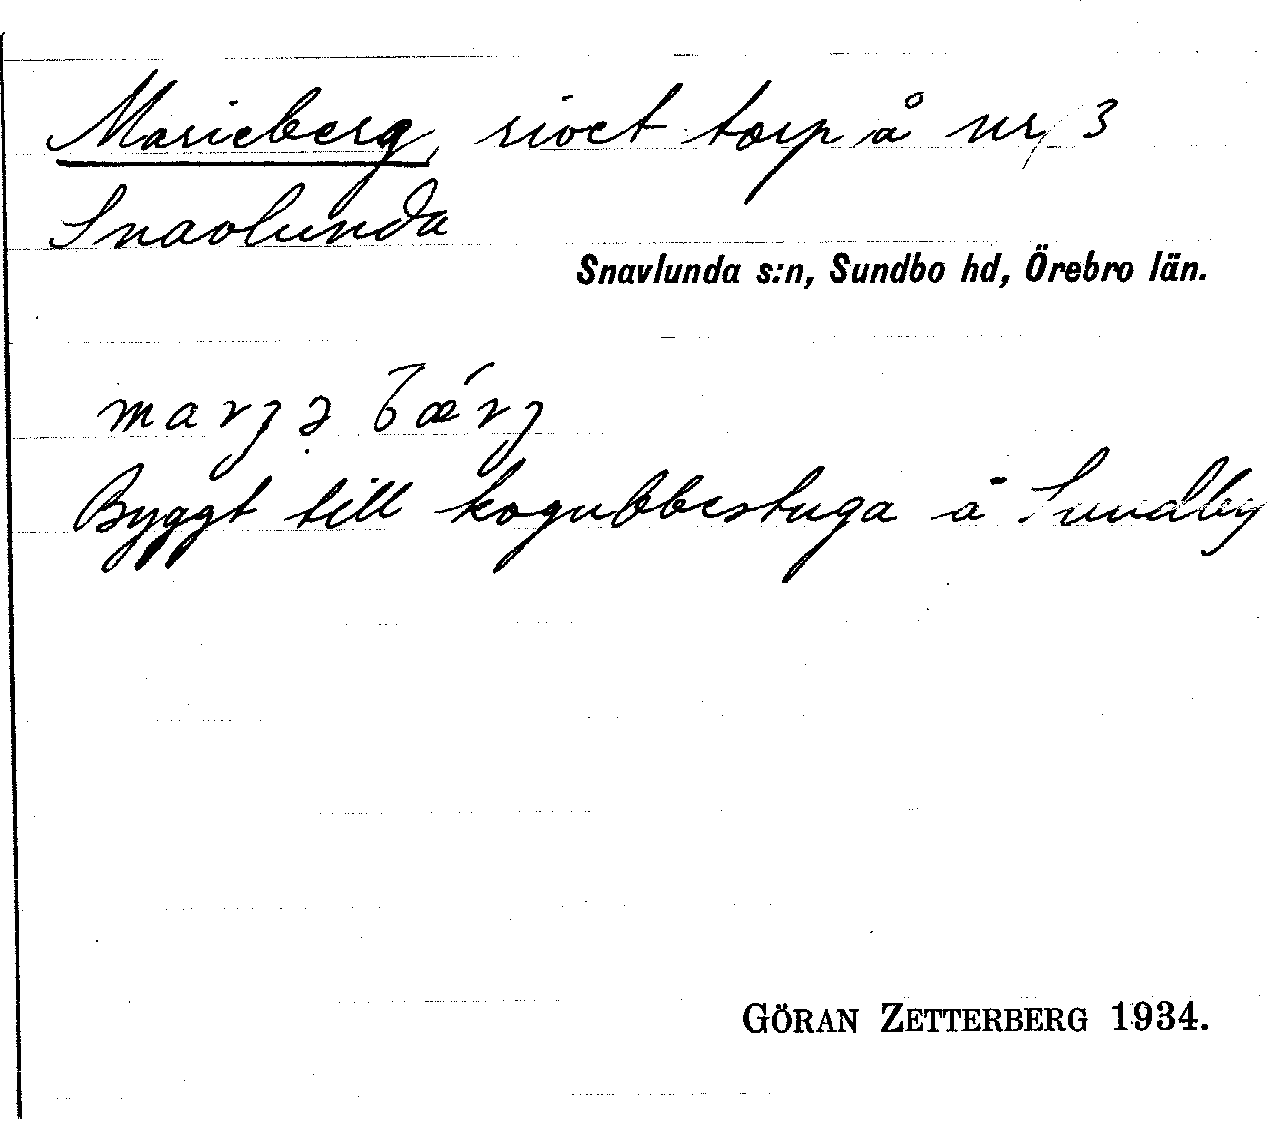 Marieberg, rivet torp å nr 3
Snavlunda
Snavlunda s:n, Sundbo hd, Örebro län.
Byggt till kogubbestuga å Sundby
GÖRAN ZETTERBERG 1934.